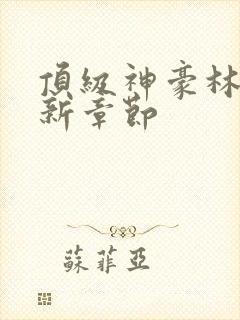 頂級神豪林
新章節
蘇菲亞